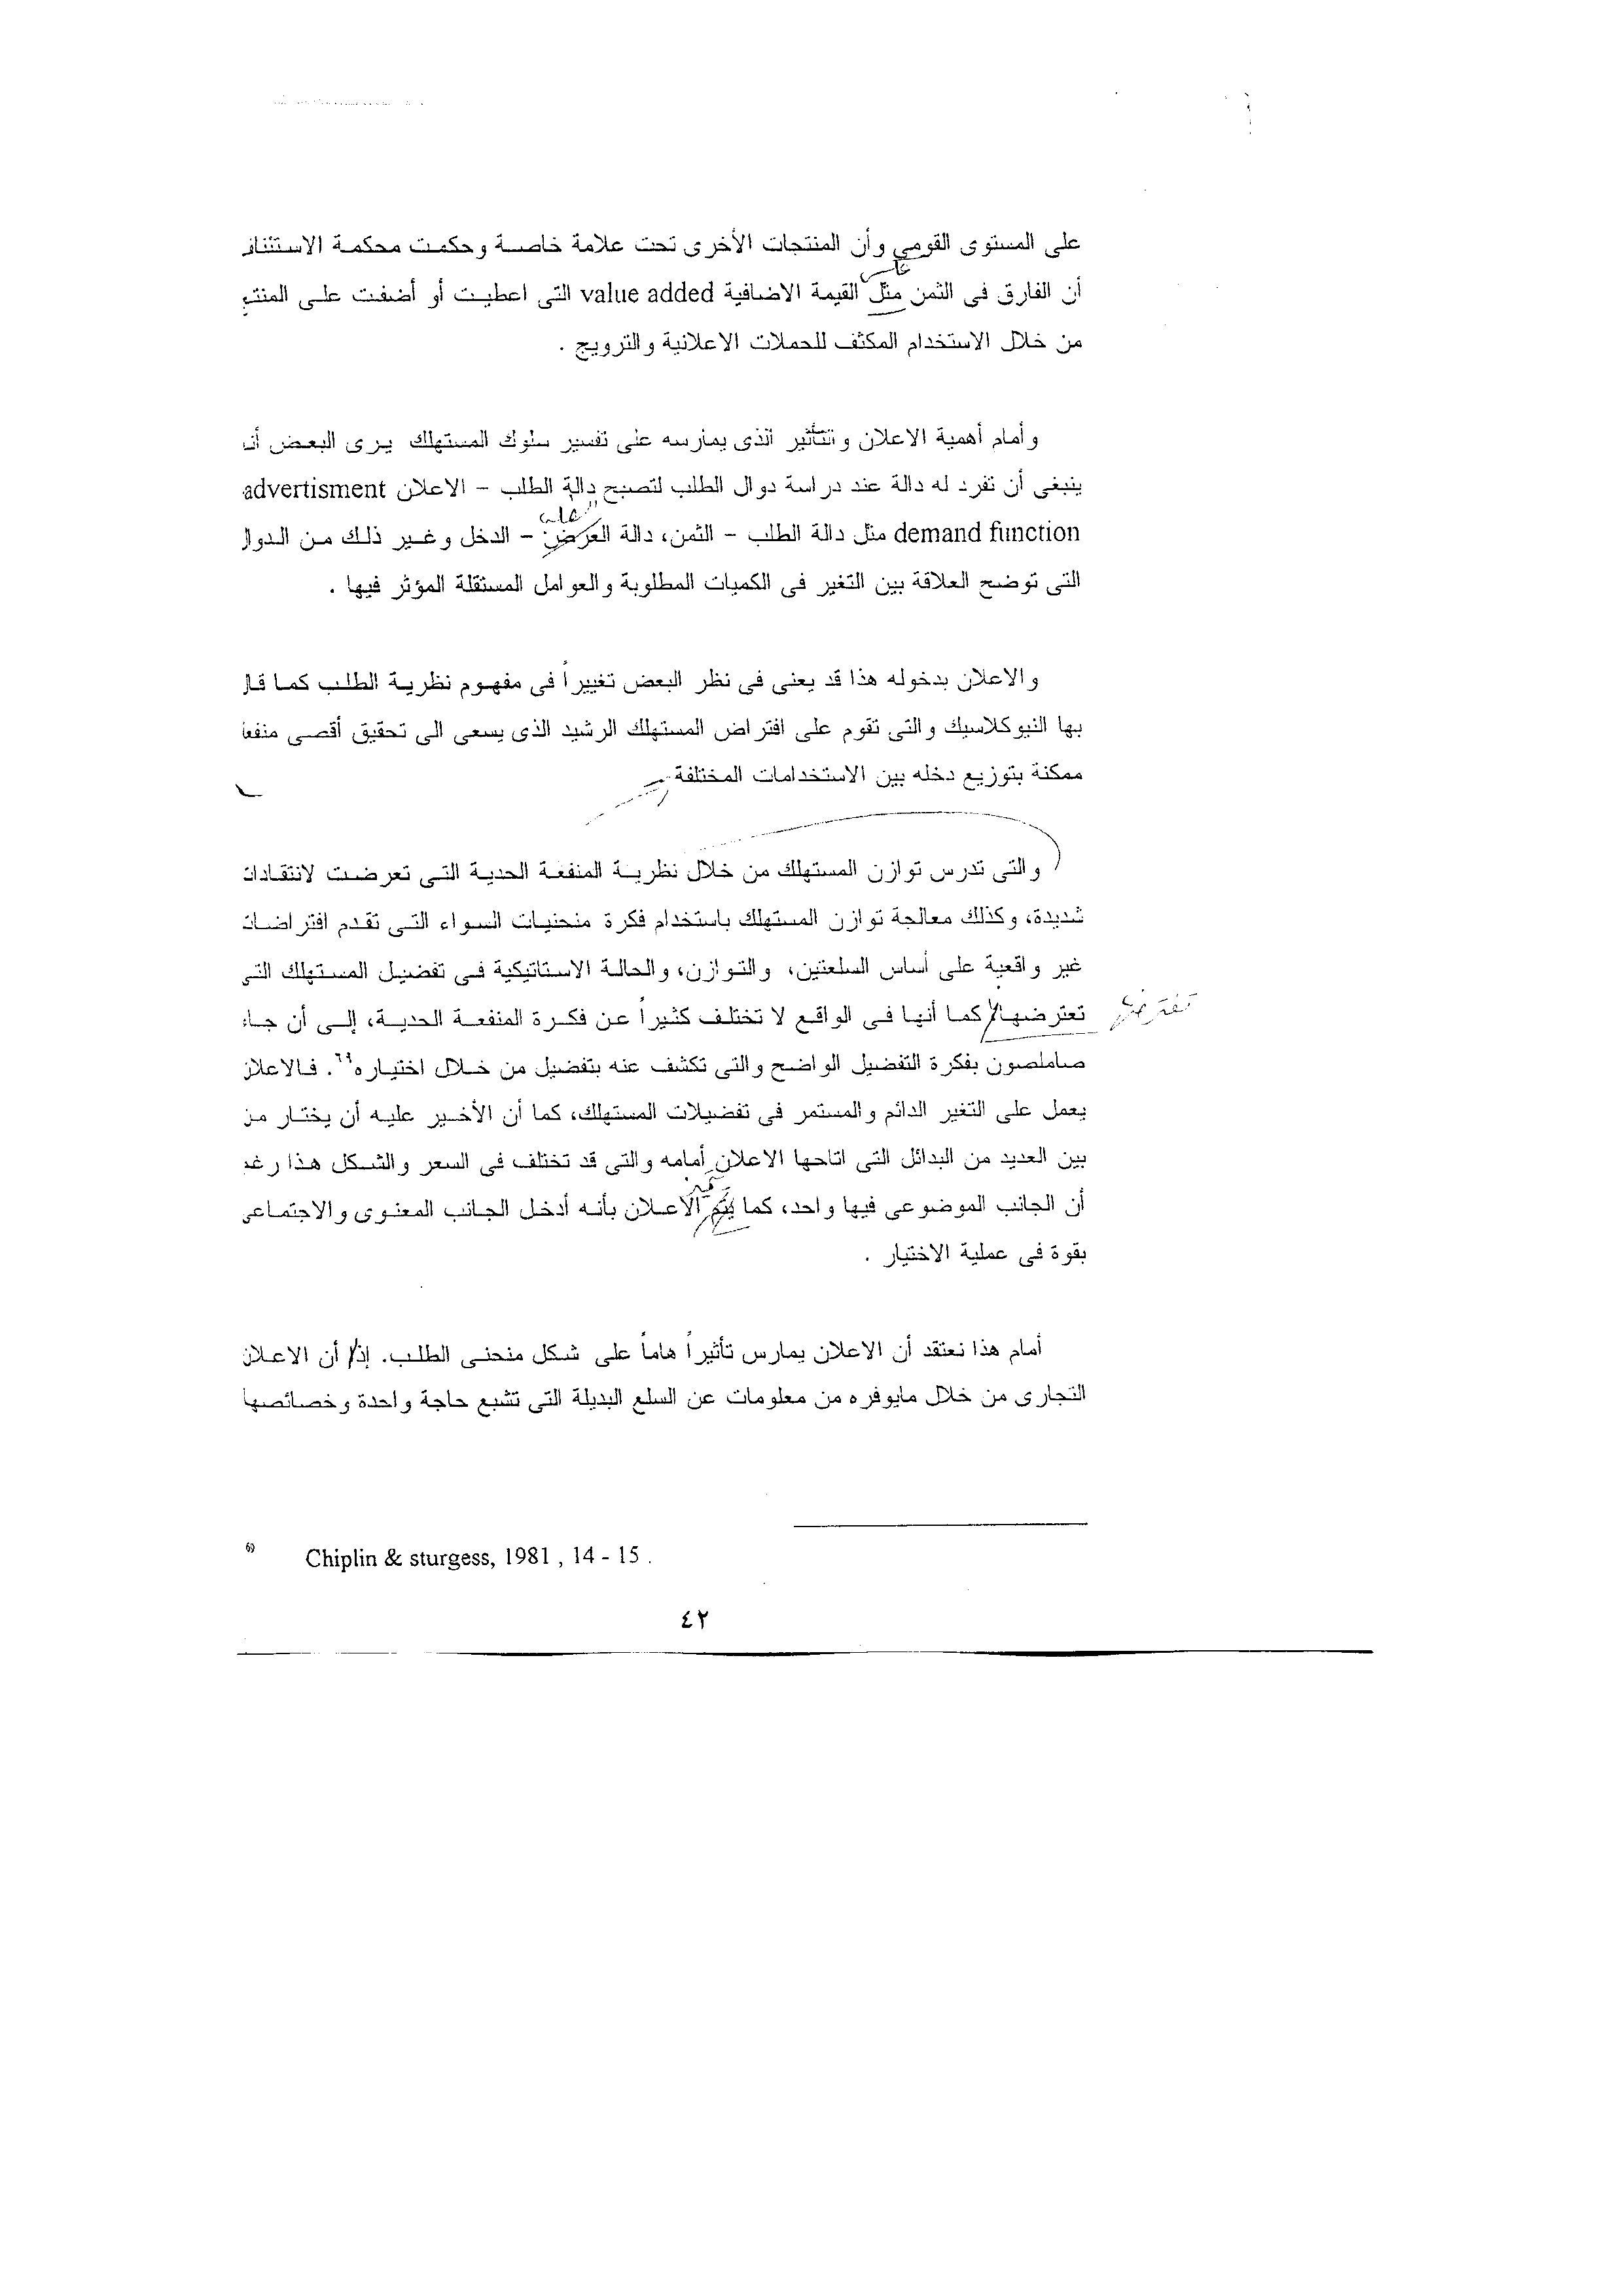 على المستوى القومى وأن المنتجات الأخرى تحت علامة خاصة وحكمت محكمة الاستئناف
أن الفارق فى الثمن مثل القيمة الاضافية value added التى اعطيت أو أضفت على المنتج
من خلال الاستخدام المكثف للحملات الاعلانية والترويج .
وأمام أهمية الاعلان والتأثير الذى يمارسه على تفسير سلوك المستهلك يرى البعض أنه
ينبغى أن تفرد له دالة عند دراسة دوال الطلب لتصبح دالة الطلب – الاعلان advertisment
demand function مثل دالة الطلب – الثمن، دالة العرض – الدخل وغير ذلك من الدوال
التى توضح العلاقة بين التغير فى الكميات المطلوبة والعوامل المستقلة المؤثر فيها .
والاعلان بدخوله هذا قد يعنى فى نظر البعض تغييراً فى مفهوم نظرية الطلب كما قال
بها النيوكلاسيك والتى تقوم على افتراض المستهلك الرشيد الذى يسعى الى تحقيق أقصى منفعة
ممكنة بتوزيع دخله بين الاستخدامات المختلفة
والتى تدرس توازن المستهلك من خلال نظرية المنفعة الحدية التى تعرضت لانتقادات
شديدة، وكذلك معالجة توازن المستهلك باستخدام فكرة منحنيات السواء التى تقدم افتراضات
غير واقعية على أساس السلعتين، والتوازن، والحالة الاستاتيكية فى تفضيل المستهلك التى
تعترضها كما أنها فى الواقع لا تختلف كثيراً عن فكرة المنفعة الحدية، إلى أن جاء
صاملصون بفكرة التفضيل الواضح والتى تكشف عنه بتفضيل من خلال اختياره٦٩. فالاعلان
يعمل على التغير الدائم والمستمر فى تفضيلات المستهلك، كما أن الأخير عليه أن يختار من
بين العديد من البدائل التى اتاحها الاعلان أمامه والتى قد تختلف فى السعر والشكل هذا رغم
أن الجانب الموضوعى فيها واحد، كما يتم الاعلان بأنه أدخل الجانب المعنوى والاجتماعى
بقوة فى عملية الاختيار .
أمام هذا نعتقد أن الاعلان يمارس تأثيراً هاماً على شكل منحنى الطلب. إذ أن الاعلان
التجارى من خلال مايوفره من معلومات عن السلع البديلة التى تشبع حاجة واحدة وخصائصها
69 Chiplin & sturgess, 1981 , 14 - 15 .
٤٢